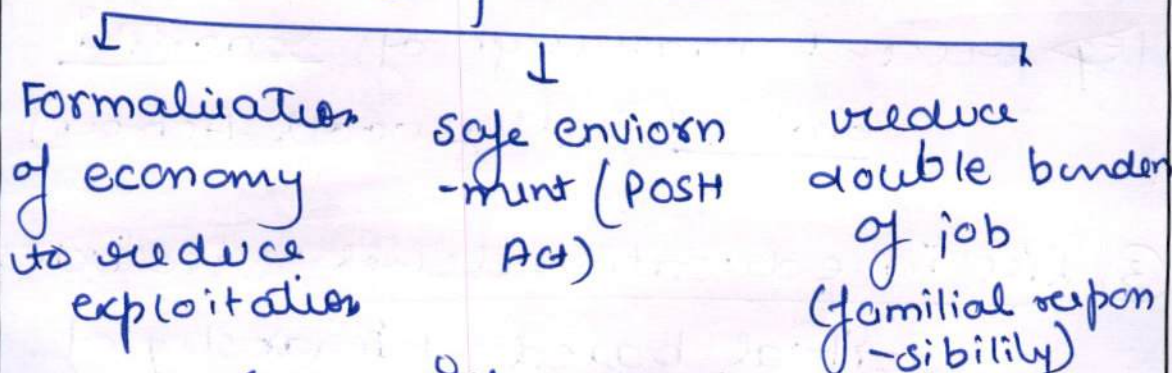 Formalization
of economy
to reduce
exploitation
safe enviorn
-ment (POSH
Act)
reduce
double burden
of job
(familial respon
-sibility)